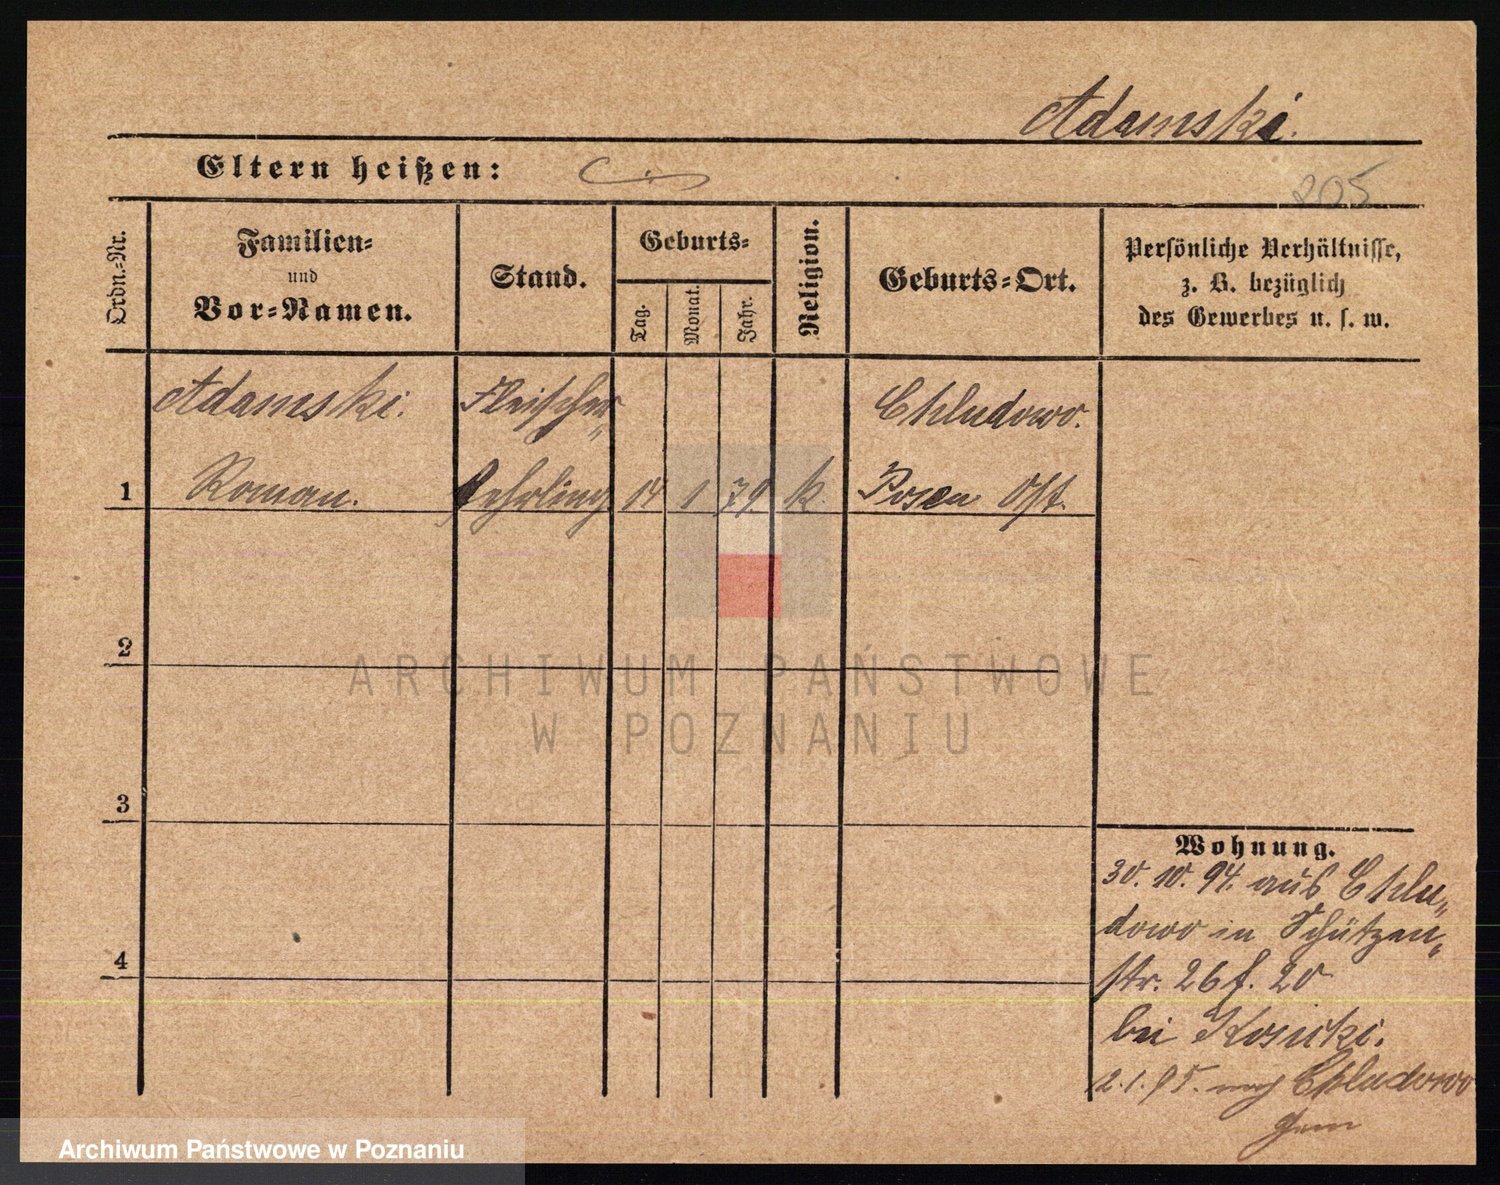 Adamski.
Eltern heißen:
205
Ordn.-Nr.
Familien-
und
Vor-Namen.
Stand.
Geburts-
Tag.
Monat.
Jahr.
Religion.
Geburts-Ort.
Persönliche Verhältnisse,
z. B. bezüglich
des Gewerbes u. s. w.
Adamski.
Fleischer-
Chludowo.
1
Roman.
Lehrling
14
1
79.
k.
Posen Ost.
2
ARCHIWUM PAŃSTWOWE
W POZNANIU
3
Wohnung.
30. 10. 94. aus Chlu-
dowo in Schützen-
4
str. 26 f. 20
bei Kosicki.
2. 1. 95. nach Chludowo
Archiwum Państwowe w Poznaniu